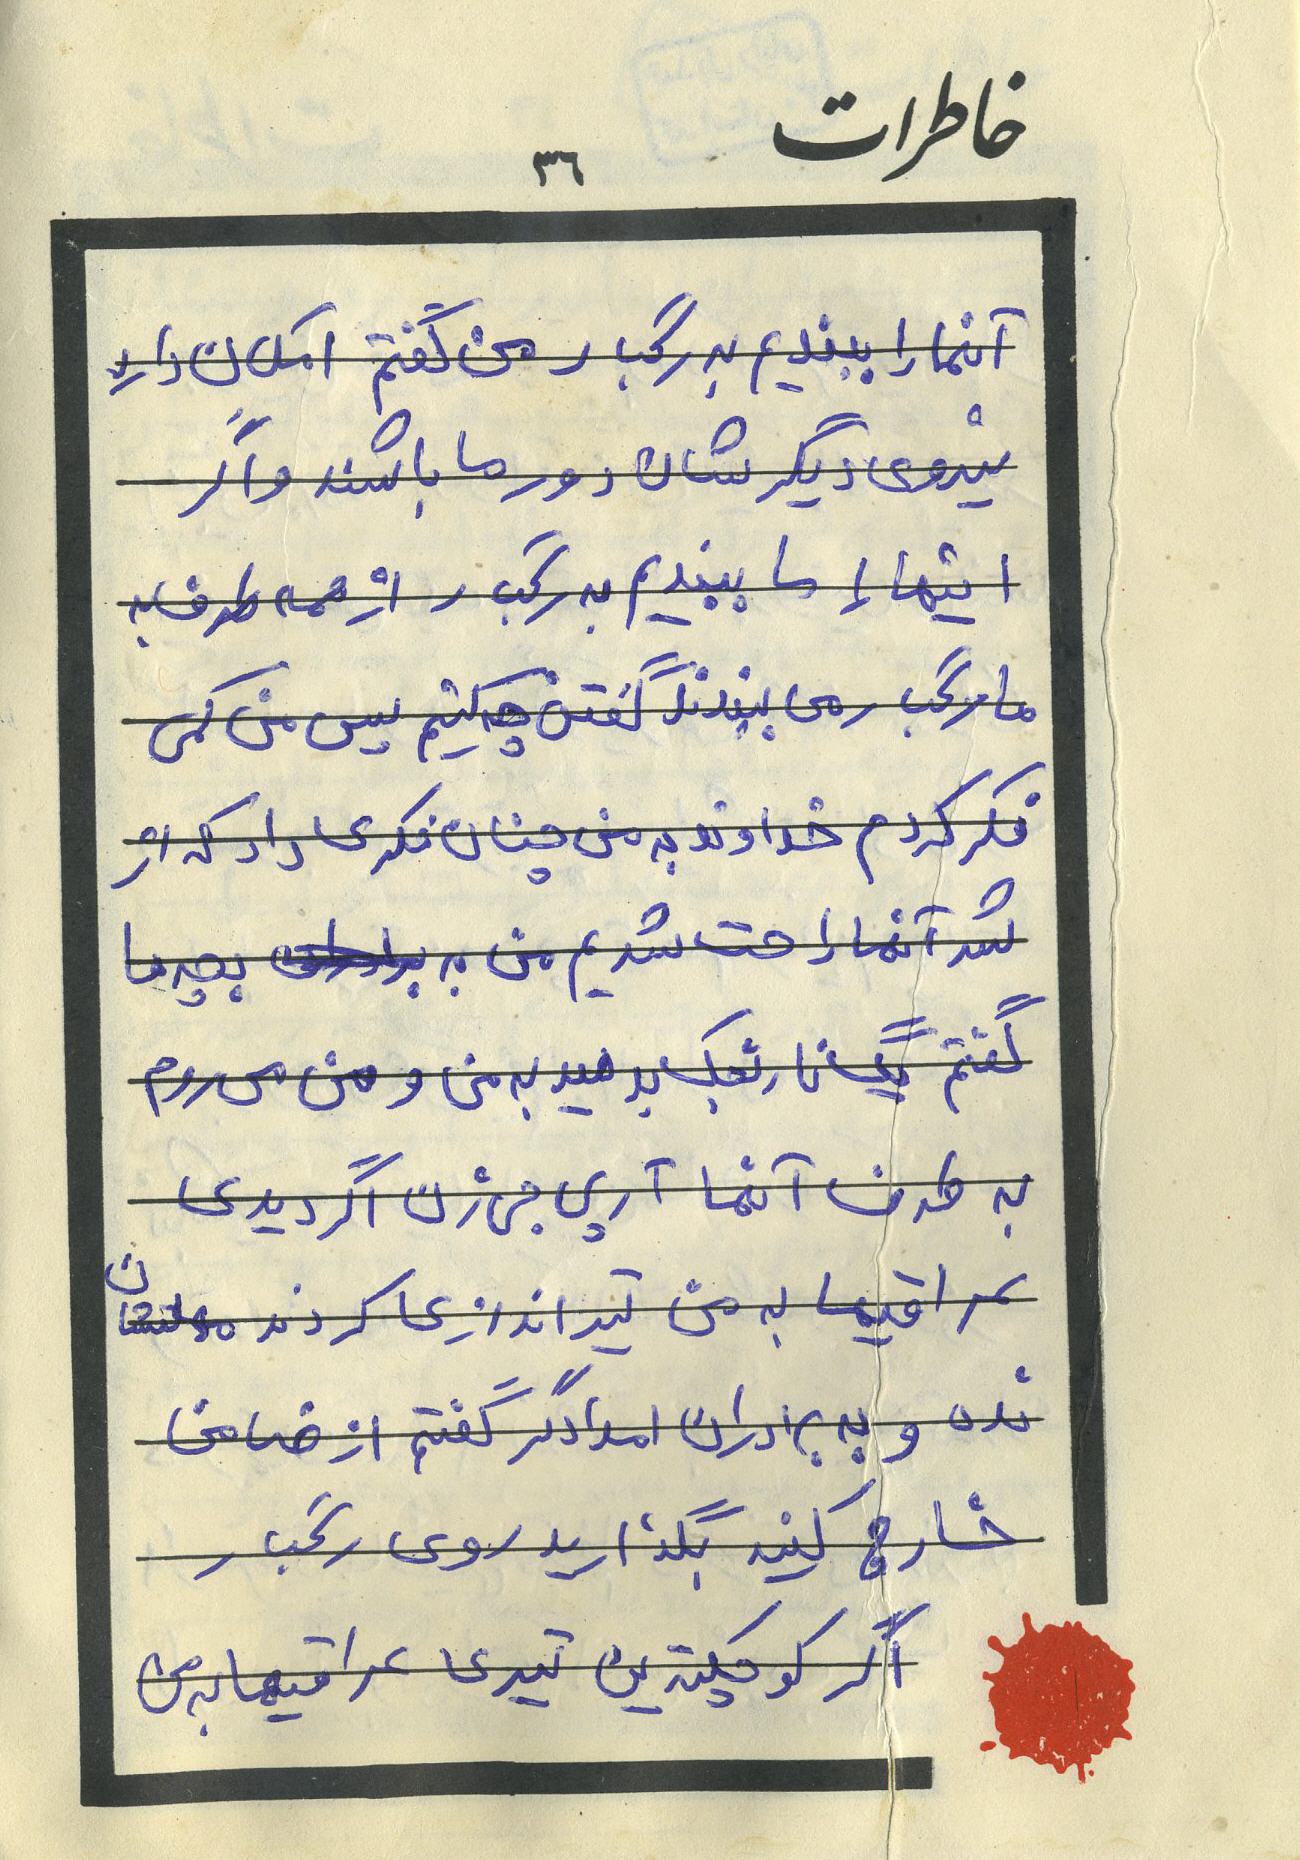 خاطرات
٣٦
آنها را ببندیم به رگبار من گفتم امکان دارد
نیروی دیگرشان دور ما باشند و اگر
اینها را ما ببندیم به رگبار از همه طرف به
ما رگبار می ببندند گفتن چه کنیم پس من کمی
فکر کردم خداوند به من چنان فکری داد که از
شد آنها راحت شدیم من به بچه ها
گفتم یک نارنجک بدهید به من و من می روم
به طرف آنها آرپی جی زن اگر دیدی
عراقیها به من تیراندازی کردند
نده و به برادران امدادگر گفتم از ضامن
خارج کنید بگذارید روی رگبار
اگر کوچکترین تیری عراقیها به من